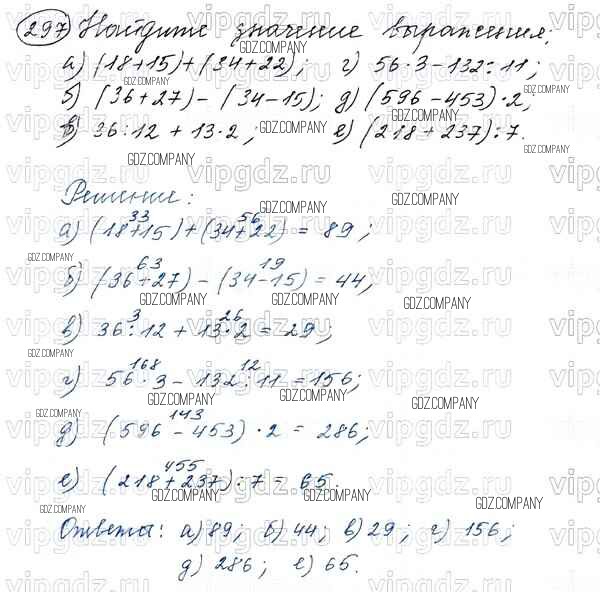 297 Найдите значение выражения:
а) (18+15)+(34+22); г) 56·3-132:11;
б) (36+27)-(34-15); д) (596-453)·2;
в) 36:12+13·2; е) (218+237):7.
Решение:
33 56
а) (18+15)+(34+22) = 89;
63 19
б) (36+27)-(34-15) = 44;
3 26
в) 36:12+13·2 = 29;
168 12
г) 56·3-132:11 = 156;
143
д) (596-453)·2 = 286;
455
е) (218+237):7 = 65.
Ответы: а) 89; б) 44; в) 29; г) 156;
д) 286; е) 65.
vipgdz.ru
GDZ.COMPANY